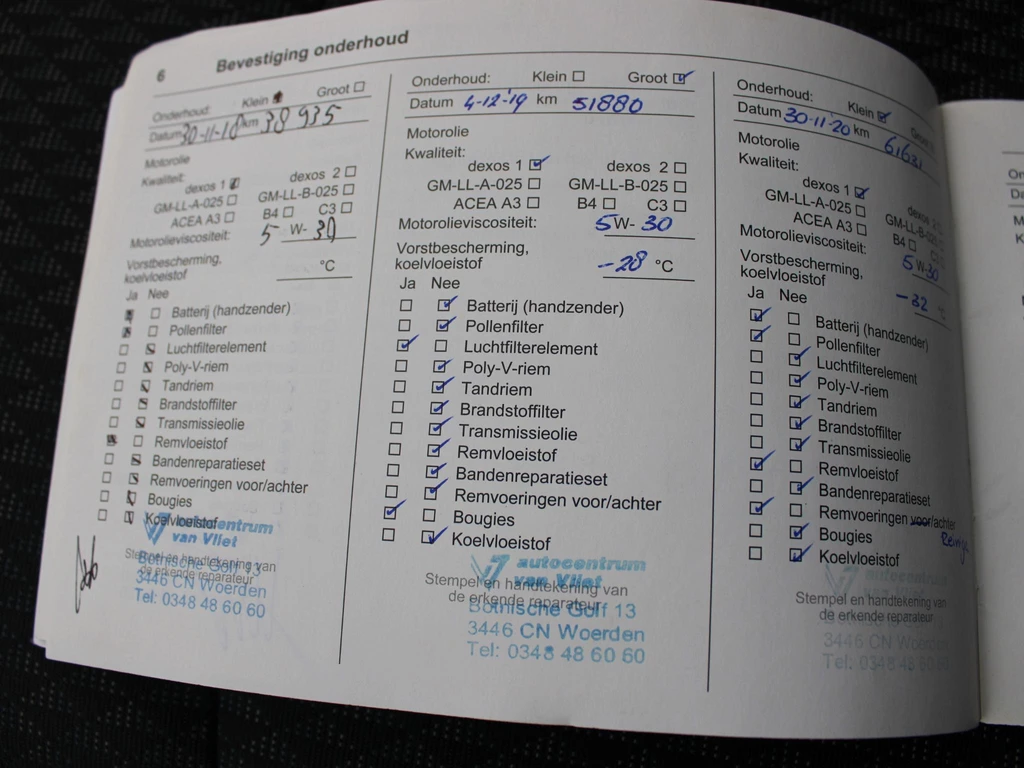 6 Bevestiging onderhoud
Onderhoud: Klein Groot
Datum 30-11-18 km 38935
Motorolie
Kwaliteit:
dexos 1 dexos 2
GM-LL-A-025 GM-LL-B-025
ACEA A3 B4 C3
Motorolieviscositeit: 5 W- 30
Vorstbescherming,
koelvloeistof °C
Ja Nee
Batterij (handzender)
Pollenfilter
Luchtfilterelement
Poly-V-riem
Tandriem
Brandstoffilter
Transmissieolie
Remvloeistof
Bandenreparatieset
Remvoeringen voor/achter
Bougies
Koelvloeistof
autocentrum
van Vliet
Stempel en handtekening van
de erkende reparateur
Bothische Golf 13
3446 CN Woerden
Tel: 0348 48 60 60
Onderhoud: Klein Groot
Datum 4-12-'19 km 51880
Motorolie
Kwaliteit:
dexos 1 dexos 2
GM-LL-A-025 GM-LL-B-025
ACEA A3 B4 C3
Motorolieviscositeit: 5 W- 30
Vorstbescherming,
koelvloeistof -28 °C
Ja Nee
Batterij (handzender)
Pollenfilter
Luchtfilterelement
Poly-V-riem
Tandriem
Brandstoffilter
Transmissieolie
Remvloeistof
Bandenreparatieset
Remvoeringen voor/achter
Bougies
Koelvloeistof
autocentrum
van Vliet
Stempel en handtekening van
de erkende reparateur
Bothische Golf 13
3446 CN Woerden
Tel: 0348 48 60 60
Onderhoud: Klein
Datum 30-11-'20 km 61631
Motorolie
Kwaliteit:
dexos 1 dexos 2
GM-LL-A-025 GM-LL-B-025
ACEA A3 B4 C3
Motorolieviscositeit: 5 W-30
Vorstbescherming,
koelvloeistof -32 °C
Ja Nee
Batterij (handzender)
Pollenfilter
Luchtfilterelement
Poly-V-riem
Tandriem
Brandstoffilter
Transmissieolie
Remvloeistof
Bandenreparatieset
Remvoeringen voor/achter
Bougies
Koelvloeistof
autocentrum
Stempel en handtekening van
de erkende reparateur
3446 CN Woerden
Tel: 0348 48 60 60